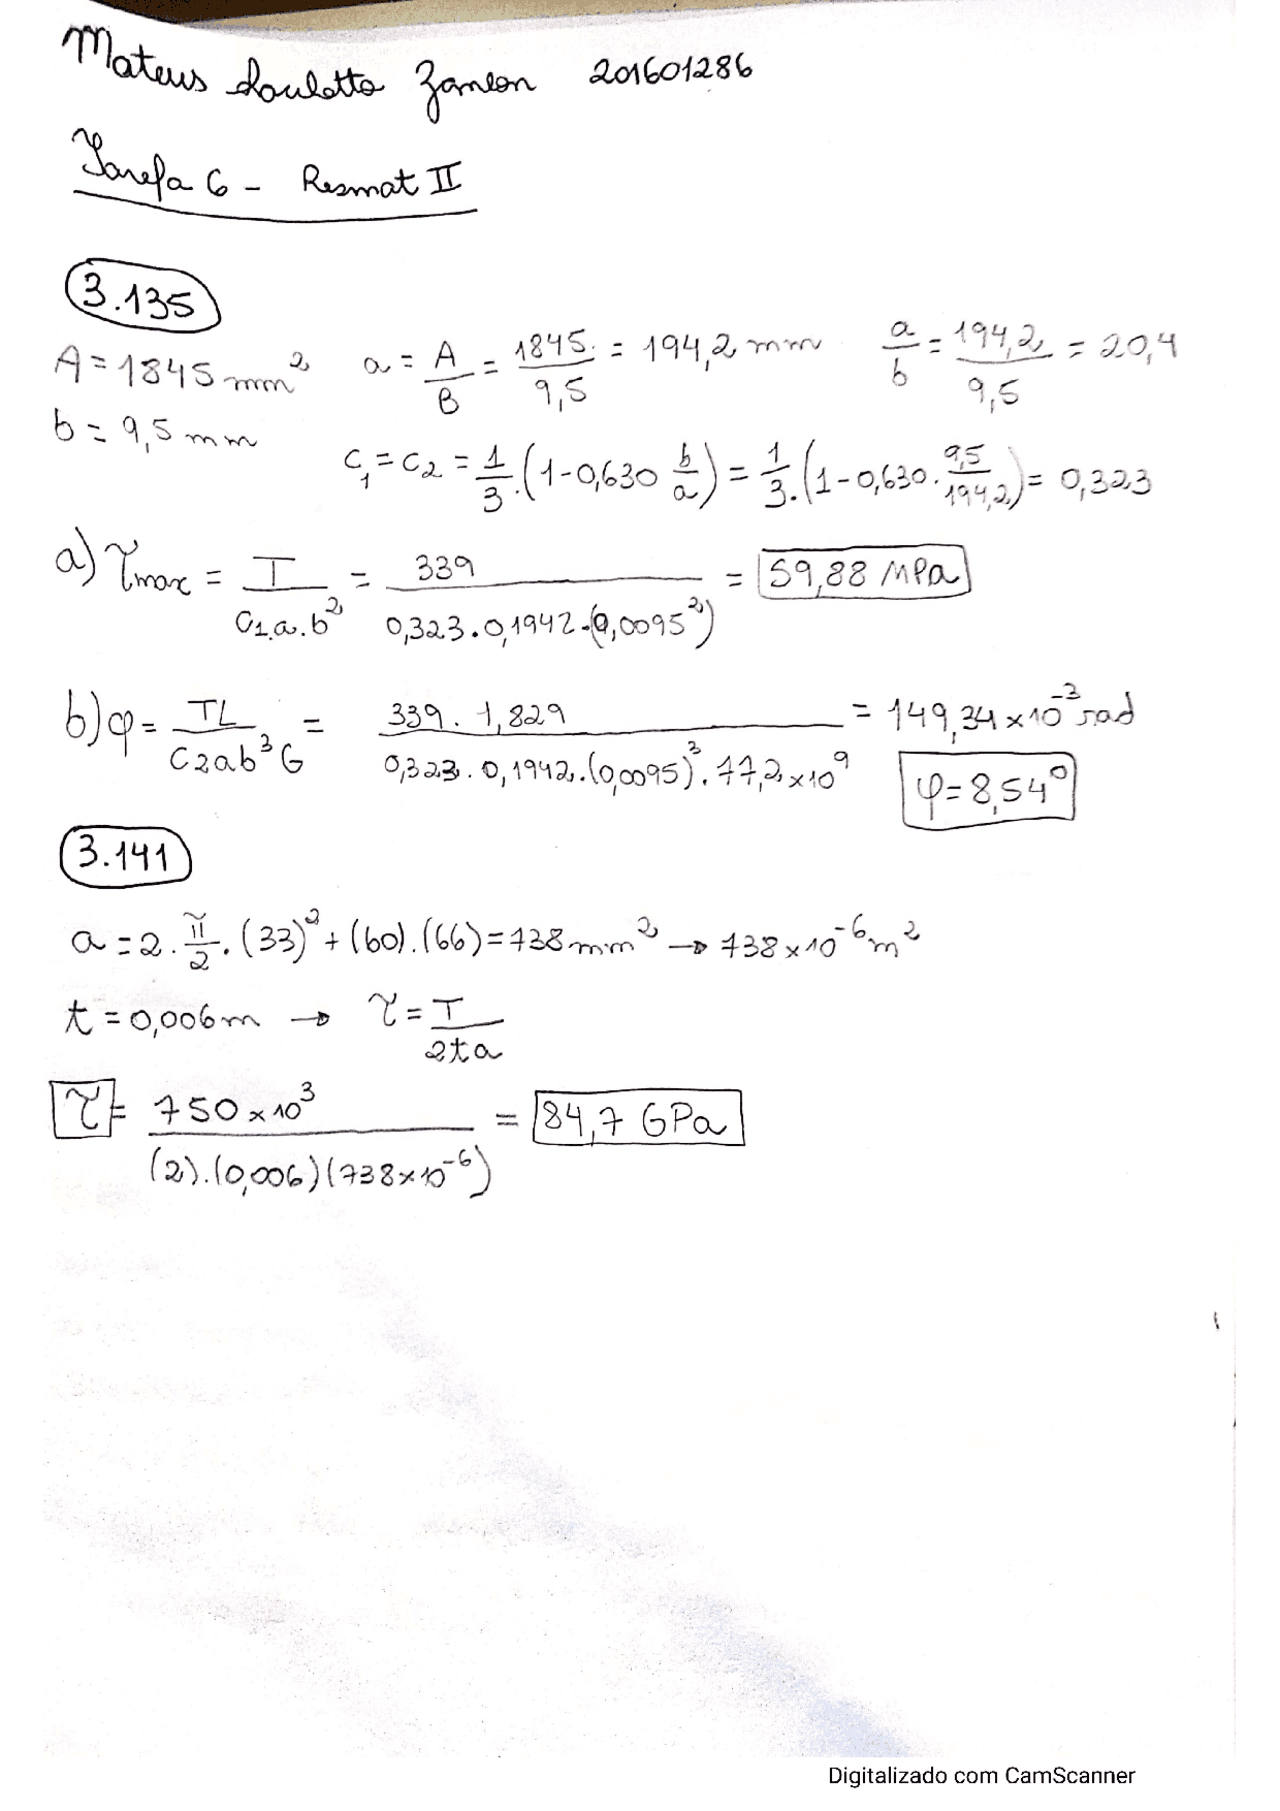 Mateus Zanlon 201601286
Tarefa 6 - Resmat II
3.135
A = 1845 mm² a = A/B = 1845/9,5 = 194,2 mm a/b = 194,2/9,5 = 20,4
b = 9,5 mm
C₁ = C₂ = 1/3 . (1 - 0,630 b/a) = 1/3 . (1 - 0,630 . 9,5/194,2) = 0,323
a) τmax = T/(C₁.a.b²) = 339/(0,323 . 0,1942 . (0,0095²)) = 59,88 MPa
b) φ = TL/(C₂ab³G) = 339 . 1,829/(0,323 . 0,1942 . (0,0095)³ . 77,2 x 10⁹) = 149,34 x 10⁻³ rad
φ = 8,54°
3.141
a = 2 . π/2 . (33)² + (60) . (66) = 738 mm² → 738 x 10⁻⁶ m²
t = 0,006 m → τ = T/(2ta)
τ = 750 x 10³/((2) . (0,006) (738 x 10⁻⁶)) = 84,7 GPa
Digitalizado com CamScanner